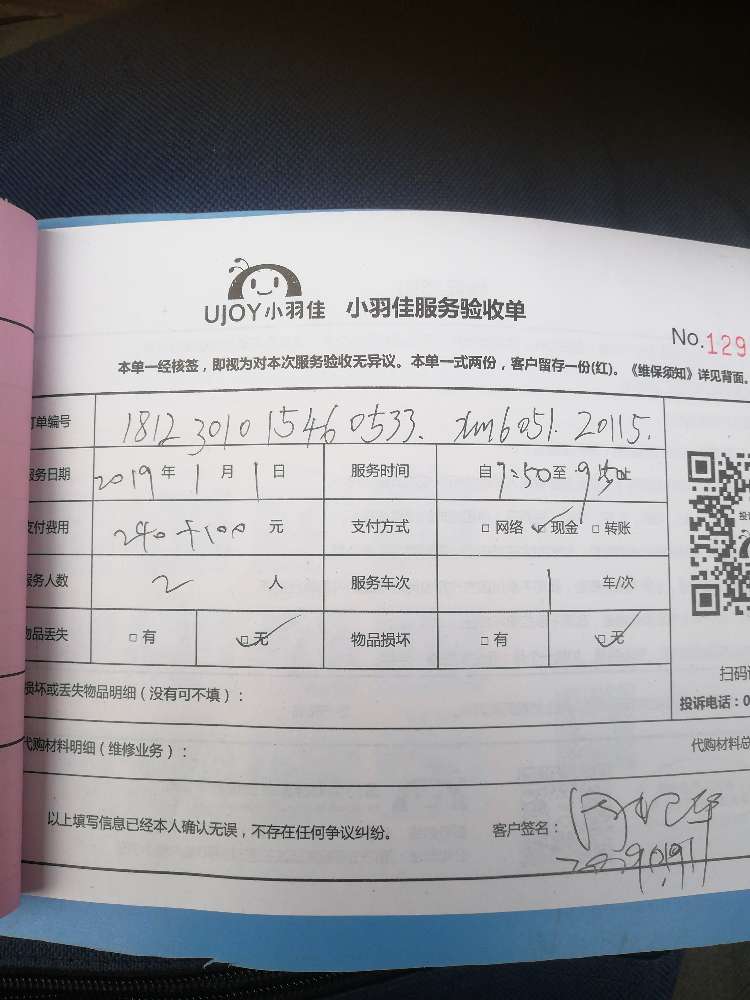 UJOY小羽佳 小羽佳服务验收单
No.129
本单一经核签，即视为对本次服务验收无异议。本单一式两份，客户留存一份(红)。《维保须知》详见背面。
订单编号 1812301015460533. xm6051. 20115.
服务日期 2019年1月1日 服务时间 自7:50至9:50止
支付费用 240+100元 支付方式 □网络 ☑现金 □转账
服务人数 2人 服务车次 1车/次
物品丢失 □有 ☑无 物品损坏 □有 ☑无
扫码
损坏或丢失物品明细（没有可不填）：
投诉电话：0
代购材料明细（维修业务）： 代购材料总
以上填写信息已经本人确认无误，不存在任何争议纠纷。 客户签名：